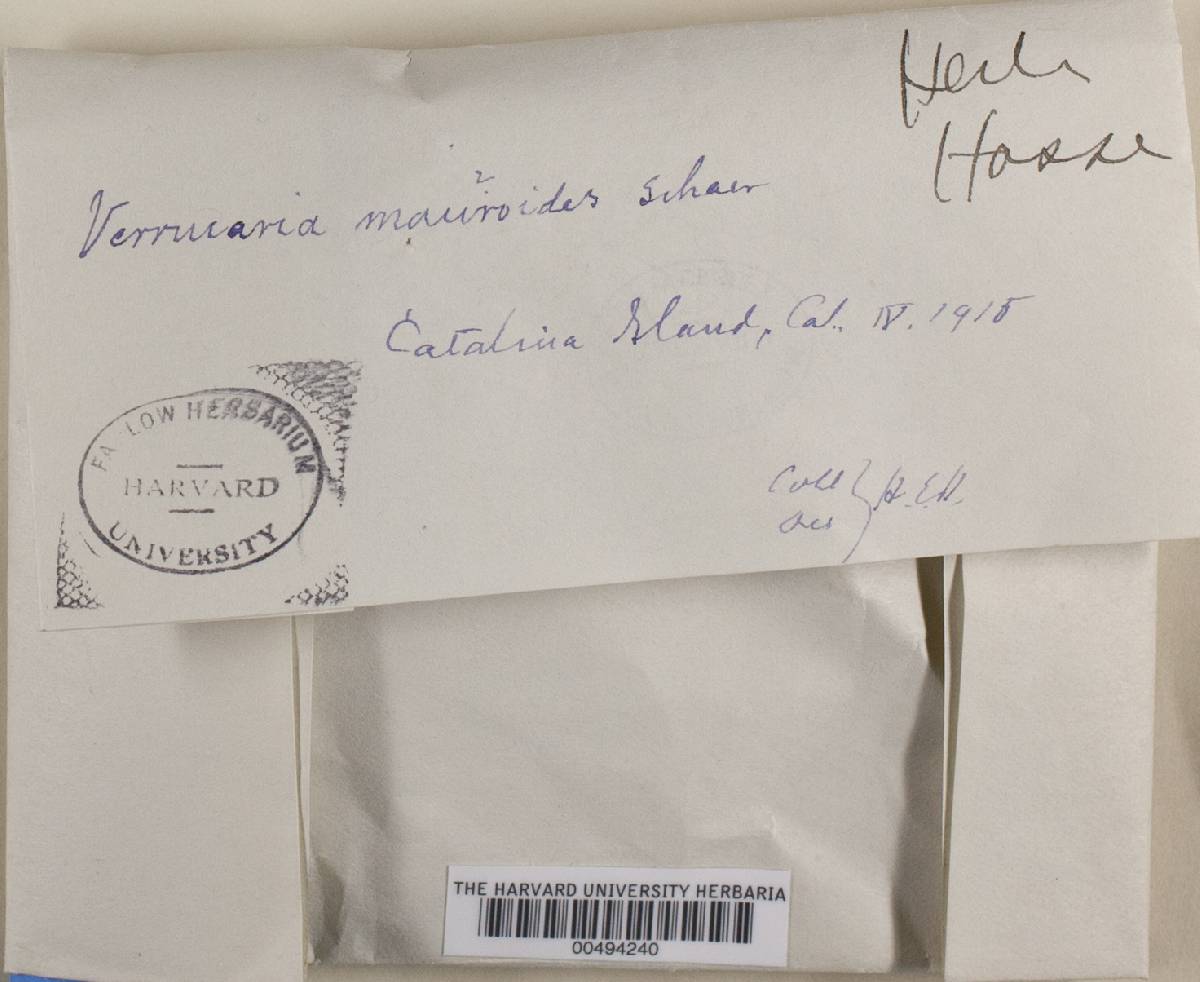 Herb.
Hasse
Verrucaria mauroides Schaer
Catalina Island, Cal. IV. 1915
FARLOW HERBARIUM
HARVARD
UNIVERSITY
Coll
Det } H.E.H.
THE HARVARD UNIVERSITY HERBARIA
00494240